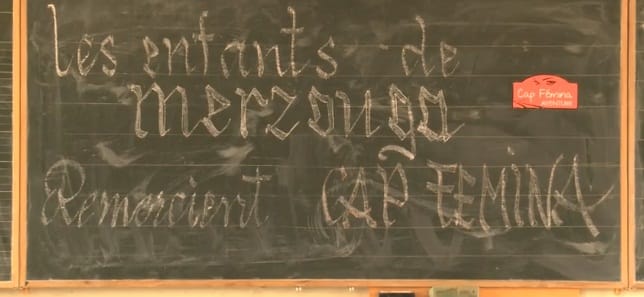 Les enfants de
merzouga
Cap Fémina
AVENTURE
Remercient CAP FEMINA